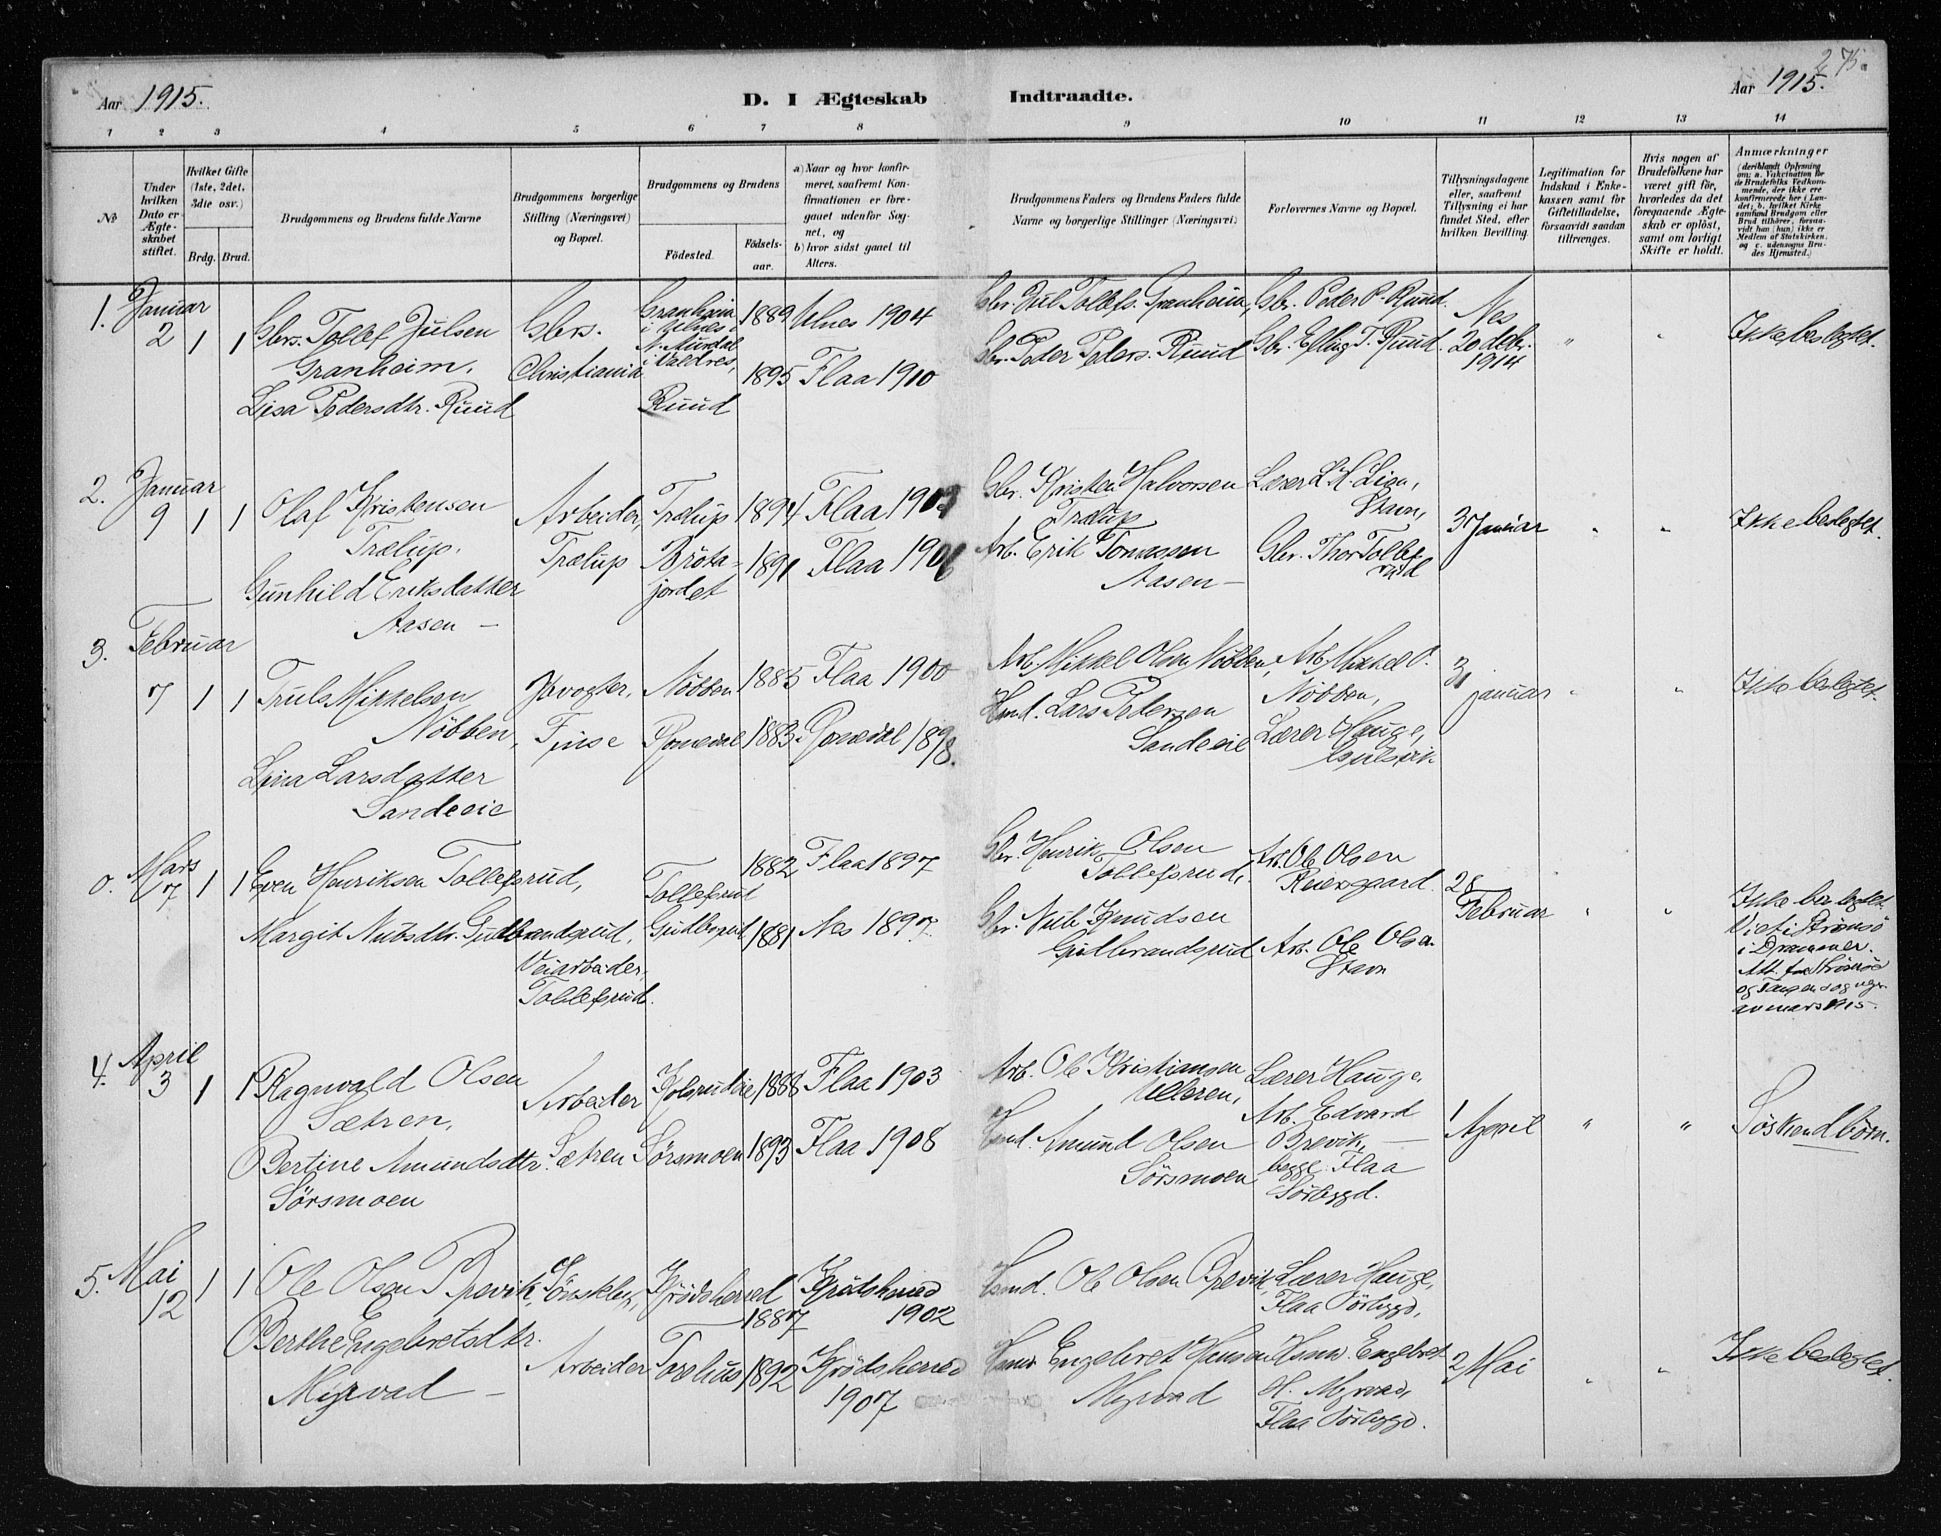 275.
Aar 1915. D. I Ægteskab Indtraadte. Aar 1915.
1 2 3 4 5 6 7 8 9 10 11 12 13 14
No
Under hvilken Dato er Ægteskabet stiftet.
Hvilket Gifte (1ste, 2det, 3die osv.)
Brdg. Brud.
Brudgommens og Brudens fulde Navne
Brudgommens borgerlige Stilling (Næringsvei) og Bopæl.
Brudgommens og Brudens
Fødested.
Fødselsaar.
a) Naar og hvor konfirmeret, saafremt Konfirmationen er foregaaet udenfor Sognet, og
b) hvor sidst gaaet til Alters.
Brudgommens Faders og Brudens Faders fulde Navne og borgerlige Stillinger (Næringsvei)
Forlovernes Navne og Bopæl.
Tillysningsdagene eller, saafremt Tillysning ei har fundet Sted, efter hvilken Bevilling.
Legitimation for Indskud i Enkekassen samt for Giftetilladelse, forsaavidt saadan tiltrænges.
Hvis nogen af Brudefolkene har været gift før, hvorledes da det foregaaende Ægteskab er opløst, samt om lovligt Skifte er holdt.
Anmærkninger
(deriblandt Oplysning om: a. Vakcination for de Brudefolks Vedkommende, der ikke ere konfirmerede her i Landet; b. hvilket Kirkesamfund Brudgom eller Brud tilhører, forsaavidt han (hun) ikke er Medlem af Statskirken, og c. udensogns Brudes Hjemsted.)
1. Januar
2 1 1
Gbrs. Tollef Julsen
Granheim,
Lisa Pedersdtr. Ruud
Gbrs.
Christiania
Granheim
i Ulnes i
N. Aurdal
i Valdres,
Ruud
1889 Ulnes 1904
1895 Flaa 1910
Gbr. Jul Tollefs. Granheim,
Gbr. Peder Peders. Ruud
Gbr. Peder P. Ruud.
Gbr. Elling T. Ruud.
Nes
20 debr.
1914
" "
Ikke beslegtet.
2. Januar
9 1 1
Olaf Kristensen
Trælup.
Gunhild Eriksdatter
Aasen –
Arbeider,
Trælup
Trælup
Bröta-
jordet
1894 Flaa
1891 Flaa
Gbr. Kristen Halvorsen
Trælup
Arb. Erik Tomassen
Aasen –
Lærer L. H. Lien,
Stavn,
Gbr. Thor Tollef
rud
3 Januar
" "
Ikke beslegtet.
3. Februar
7 1 1
Truls Mikkelsen
Nöbben,
Lina Larsdatter
Sandeeie
Finse
Nöbben
1885 Flaa 1900
1883. 1898.
Arb. Mikkel Olsen Nöbben,
Hmd. Lars Pedersen
Sandeeie
Arb. Mikkel O.
Nöbben,
Lærer Hauge,
Gulsvik
31
januar
" "
Ikke beslegtet.
0. Mars
17 1 1
Even Henriksen Tollefsrud,
Margit Nubsdtr. Gulbrandsrud,
Veiarbeider,
Tollefsrud.
Tollefsrud
1882 Flaa 1897
1881 Nes 1897
Gbr. Henrik Olsen
Tollefsrud,
Gbr. Nub Knudsen
Gulbrandsrud
Arb. Ole Olsen
Arb. Ole Olsen
Stavn
28
Februar
" "
Ikke beslegtet.
Viet i Strömsö
i Drammen.
Att. fra Strömsö
og Tangen sogn
av mars 1915.
4. April
3 1 1
Ragnvald Olsen
Sætren,
Bertine Amundsdtr.
Sörsmoen
Arbeider
Sætren
Kolsrudeie
Sörsmoen
1888 Flaa 1903
1893 Flaa 1908
Arb. Ole Kristiansen
Ulleren,
Hmd. Amund Olsen
Sörsmoen
Lærer Hauge,
Arb. Edvard
Brevik, –
begge Flaa
Sörbygd.
1
April
" "
Söskendbörn.
5. Mai
12 1 1
Ole Olsen Brevik,
Berthe Engebretsdtr.
Myrvad –
Arbeider
Krödsherred
1887
1892
Krödsherred
1902
Krödsherred
1907
Hmd. Ole Olsen Brevik,
Hmd. Engebret Hansen
Myrvad
Lærer Hauge,
Flaa Sörbygd,
Hmd. Engebret
H. Myrvad,
Flaa Sörbygd.
2 Mai
" "
Ikke beslegtet.